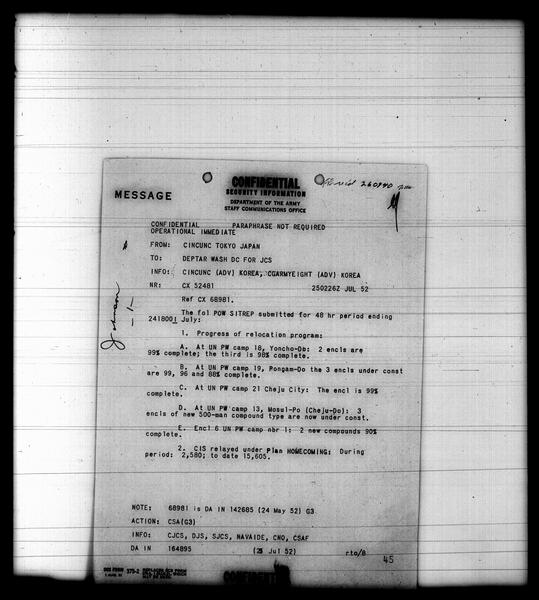 CONFIDENTIAL
SECURITY INFORMATION
DEPARTMENT OF THE ARMY
STAFF COMMUNICATIONS OFFICE
MESSAGE
CONFIDENTIAL PARAPHRASE NOT REQUIRED
OPERATIONAL IMMEDIATE
FROM: CINCUNC TOKYO JAPAN
TO: DEPTAR WASH DC FOR JCS
INFO: CINCUNC (ADV) KOREA, CGARMYEIGHT (ADV) KOREA
NR: CX 52481 250226Z JUL 52
Ref CX 68981.
The fol POW SITREP submitted for 48 hr period ending
241800I July:
1. Progress of relocation program:
A. At UN PW camp 18, Yoncho-Do: 2 encls are
99% complete; the third is 98% complete.
B. At UN PW camp 19, Pongam-Do the 3 encls under const
are 99, 96 and 88% complete.
C. At UN PW camp 21 Cheju City: The encl is 99%
complete.
D. At UN PW camp 13, Mosul-Po (Cheju-Do): 3
encls of new 500-man compound type are now under const.
E. Encl 6 UN PW camp nbr 1: 2 new compounds 90%
complete.
2. CIS relayed under Plan HOMECOMING: During
period: 2,580; to date 15,605.
Johnson
-1-
NOTE: 68981 is DA IN 142685 (24 May 52) G3
ACTION: CSA(G3)
INFO: CJCS, DJS, SJCS, NAVAIDE, CNO, CSAF
DA IN 164895 (25 Jul 52) rto/8
45
CONFIDENTIAL